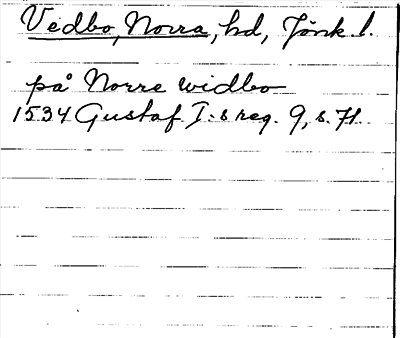 Vedbo, Norra, hd, Jönk. l.
på Norre widbo
1534 Gustaf I:s reg. 9, s. 71.